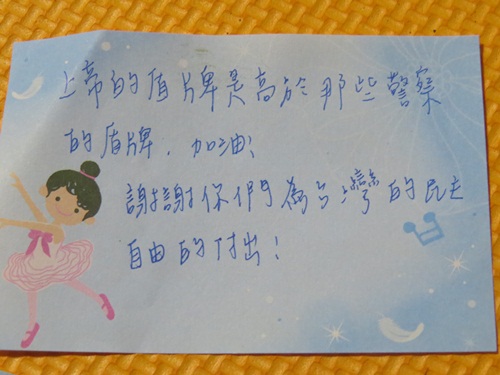 上帝的盾牌是高於那些警察
的盾牌，加油！
謝謝你們為台灣的民主
自由的付出！